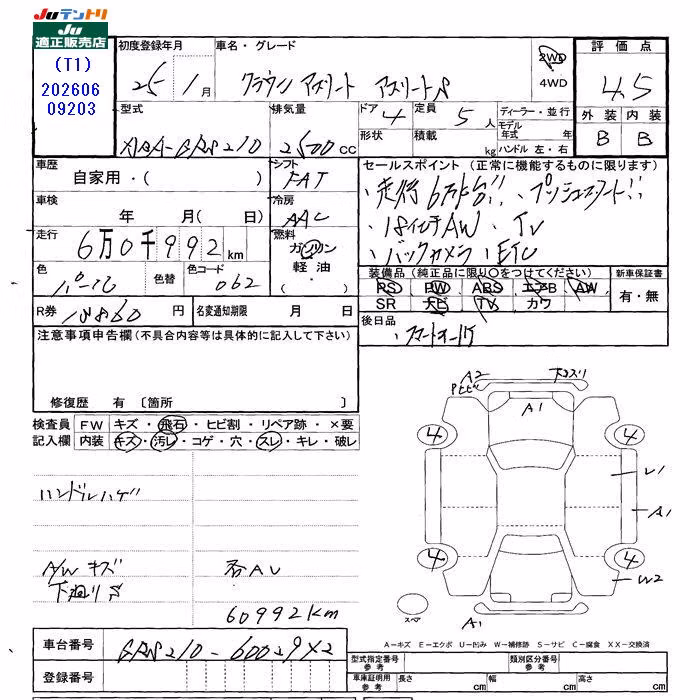 Juテントリ
Ju
適正販売店
(T1)
202606
09203
初度登録年月 車名・グレード 2WD 4WD 評価点
25年 1月 クラウン アスリート アスリートS 4.5
型式 排気量 ドア 4 定員 5人 ディーラー・並行 外装 内装
形状 積載 kg モデル年式 年 B B
ハンドル 左・右
DBA-GRS210 2500cc
車歴 シフト セールスポイント (正常に機能するものに限ります)
自家用・( ) FAT ・走行6万km台!!・プッシュスタート!!
車検 冷房 ・18インチAW ・TV
年 月( 日) AAC ・バックカメラ・ETC
走行 6万0千992km 燃料 ガソリン 軽油・ ・
装備品 (純正品に限り○をつけてください) 新車保証書
色 パール 色替 色コード 062 PS PW ABS エアB AW 有・無
SR ナビ TV カワ
R券 18860円 名変通知期限 月 日
後日品 ・スマートキー1ケ
注意事項申告欄 (不具合内容等は具体的に記入して下さい)
修復歴 有 〔箇所 〕
検査員 FW キズ・飛石・ヒビ割・リペア跡・×要
記入欄 内装 キズ・汚レ・コゲ・穴・スレ・キレ・破レ
ハンドルハゲ
A/W キズ
下廻りS
60992km
A2 下スリ
A1
4 4
U1
A1
4 4
W2
A1
スペア
A-キズ E-エクボ U-凹み W-補修跡 S-サビ C-腐食 XX-交換済
車台番号 GRS210-60029×2
型式指定番号 参考 類別区分番号 参考
登録番号 車庫証明用 参考 長さ cm 幅 cm 高さ cm